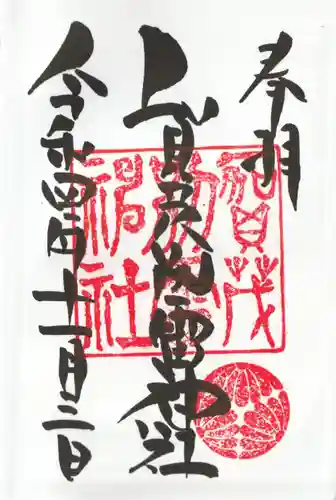 奉拝
上賀茂別雷神社
令和四年十一月三日
賀茂
別雷
神社